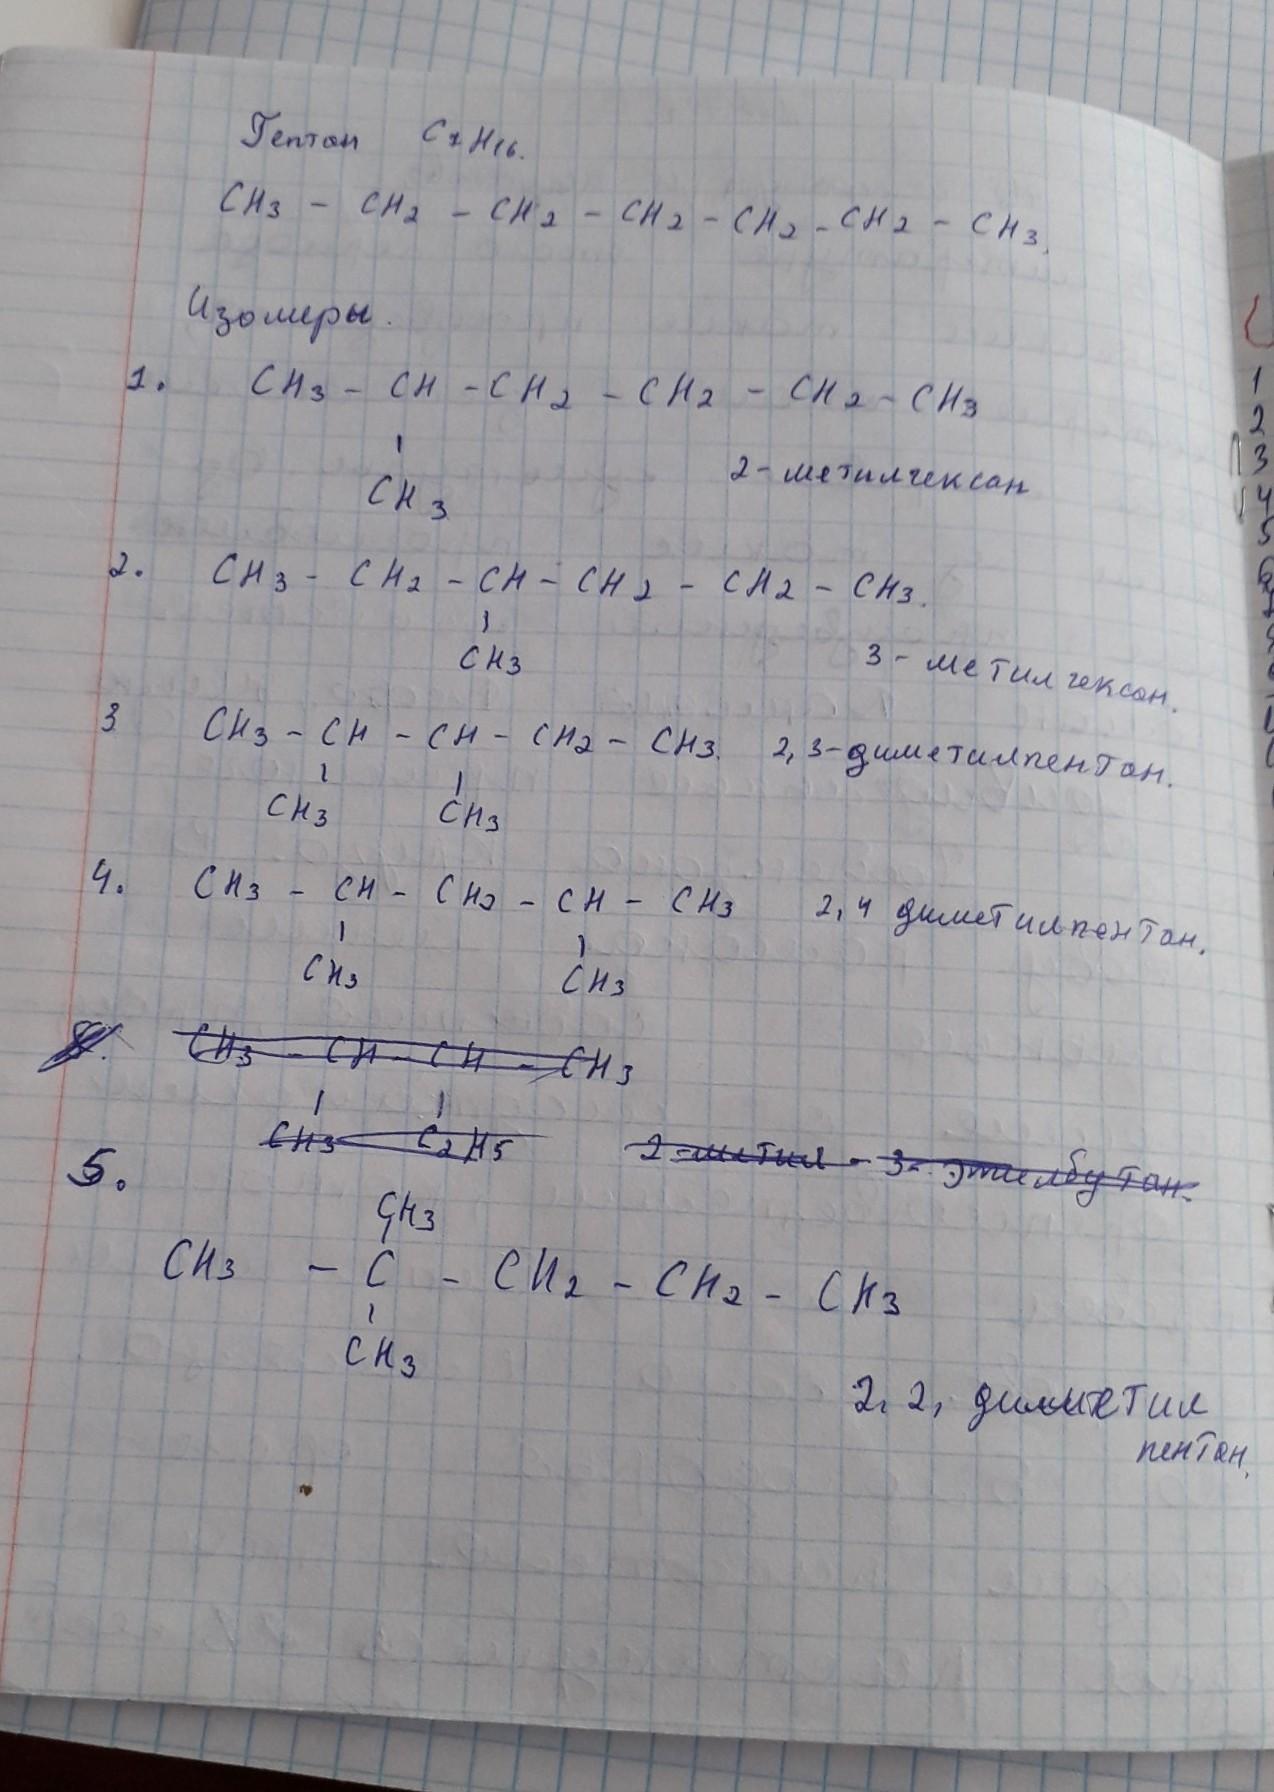 Гептан C7H16.
CH3 - CH2 - CH2 - CH2 - CH2 - CH2 - CH3.
Изомеры.
1. CH3 - CH - CH2 - CH2 - CH2 - CH3
CH3
2-метилгексан
2. CH3 - CH2 - CH - CH2 - CH2 - CH3.
CH3
3-метилгексан.
3 CH3 - CH - CH - CH2 - CH3. 2,3-диметилпентан.
CH3 CH3
4. CH3 - CH - CH2 - CH - CH3 2,4 диметилпентан.
CH3 CH3
CH3 - CH - CH - CH3
CH3 C2H5 2-метил - 3-этилбутан.
5.
CH3
CH3 - C - CH2 - CH2 - CH3
CH3
2, 2, диметил
пентан.
1
2
3
4
5